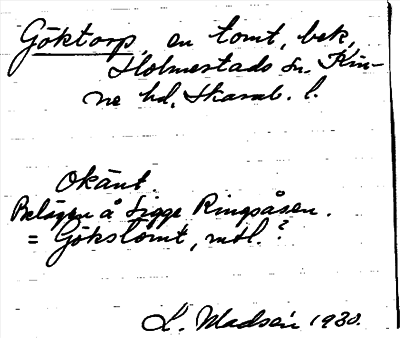 Göktorp, en tomt, bek,
Holmestads sn. Kin-
ne hd, Skarab. l.
Okänt.
Belägen å Sigge Ringsåsen.
= Gökstomt, mtl.?
L. Madsén 1930.